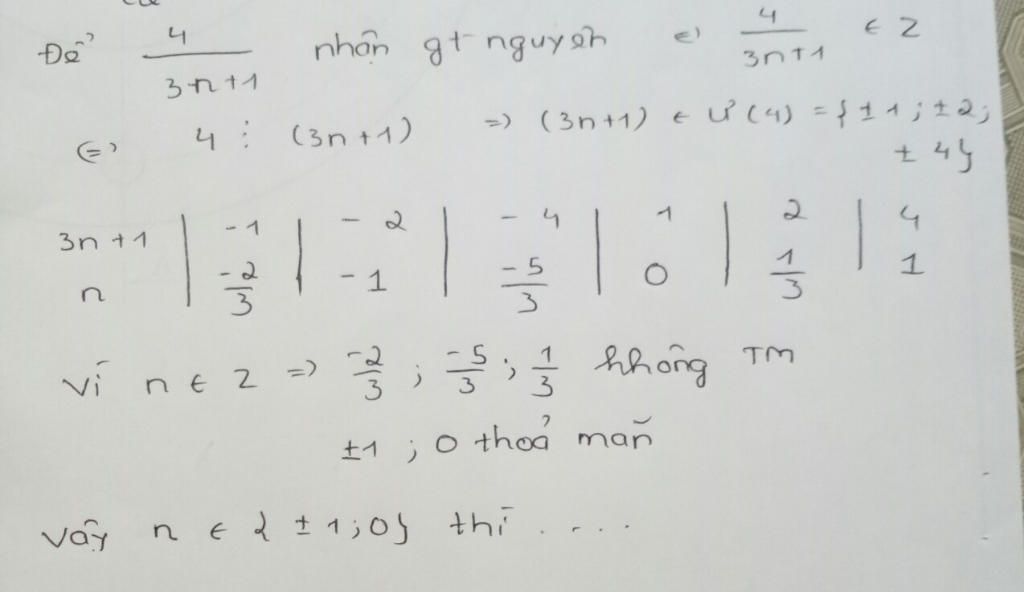 Để 4/(3n+1) nhận gt nguyên ⇔ 4/(3n+1) ∈ Z
⇔ 4 ⋮ (3n+1) ⇒ (3n+1) ∈ Ư(4) = {±1; ±2;
±4}
3n+1 | -1 | -2 | -4 | 1 | 2 | 4
n | -2/3 | -1 | -5/3 | 0 | 1/3 | 1
Vì n ∈ Z ⇒ -2/3 ; -5/3 ; 1/3 không TM
±1 ; 0 thoả mãn
Vậy n ∈ {±1; 0} thì ....